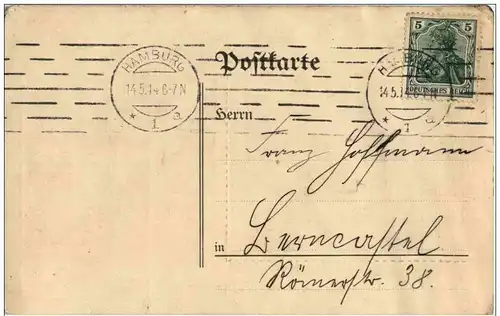 HAMBURG
14.5.14 6-7 N
* 1 a
Postkarte
HAMBURG
14.5.14 6-7 N
* 1 a
5 5
DEUTSCHES REICH
Herrn
Franz Hoffmann
in Berncastel
Römerstr. 38.